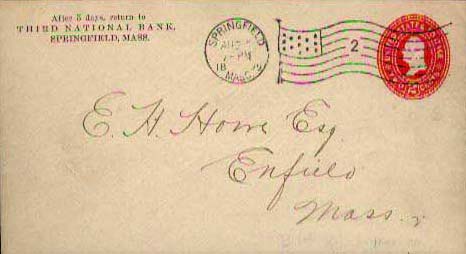 After 5 days, return to
THIRD NATIONAL BANK,
SPRINGFIELD, MASS.
SPRINGFIELD
MASS.
2
E. H. Howe Esq.
Enfield
Mass.